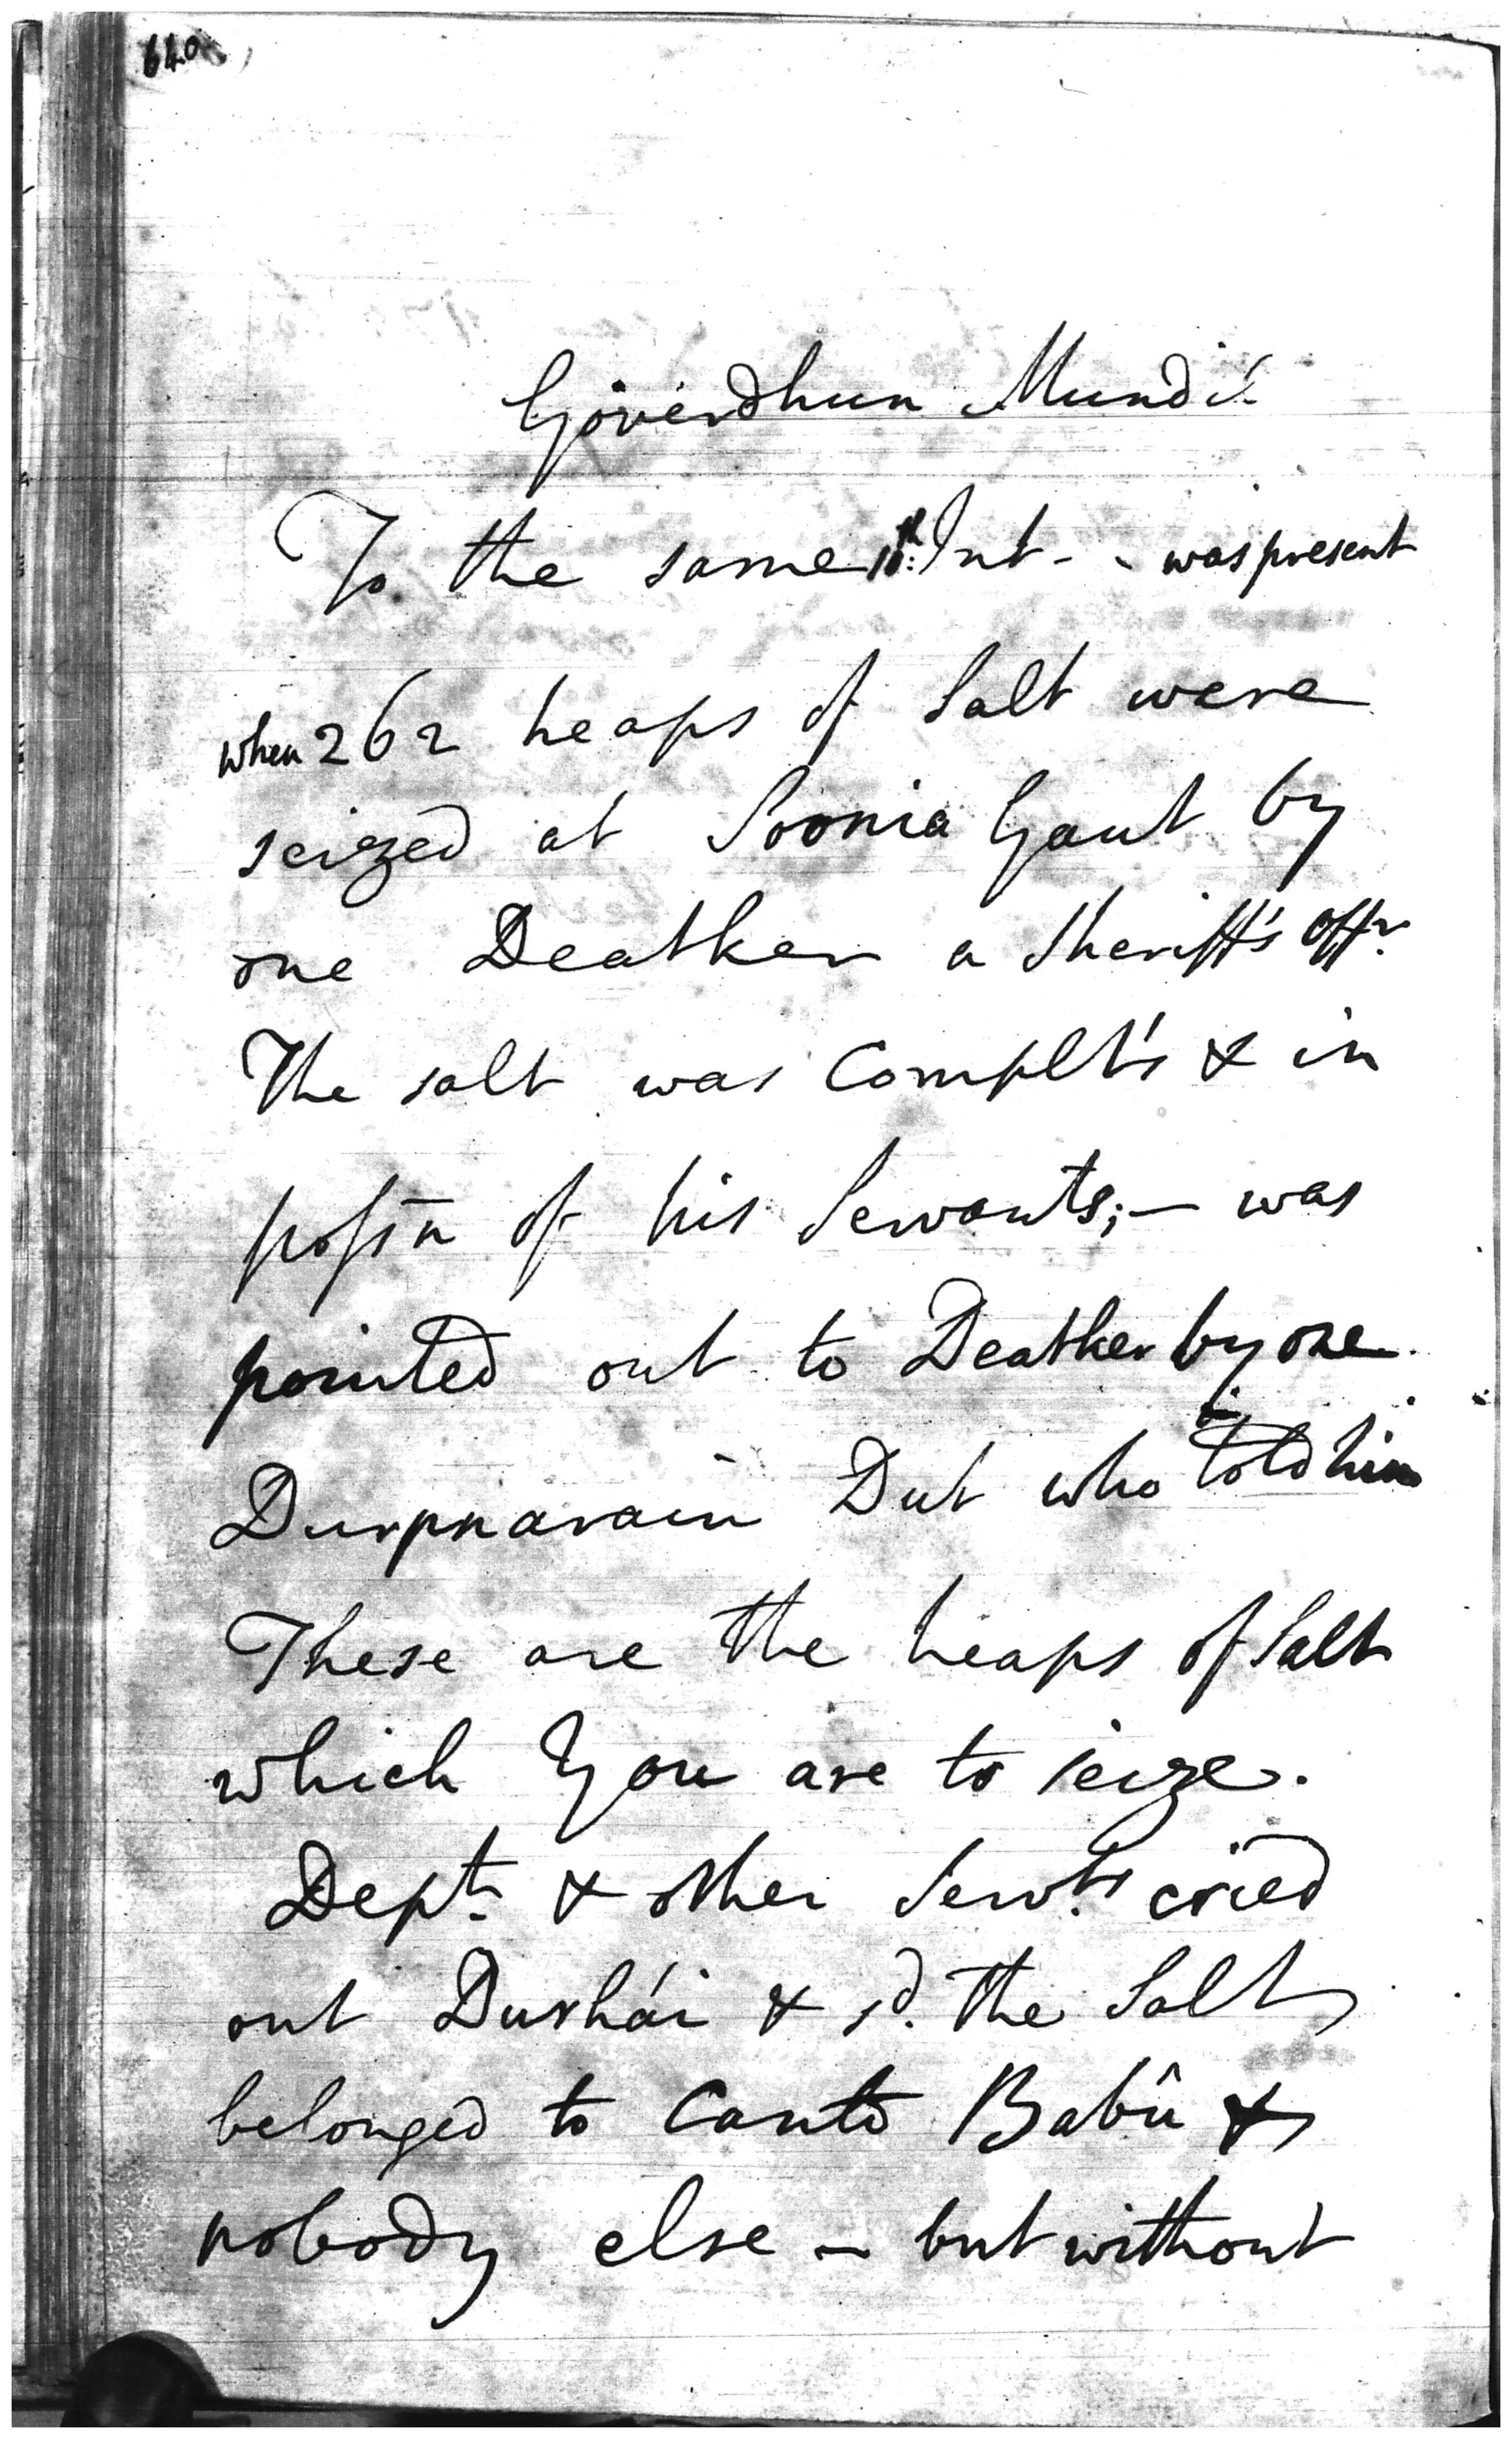 640
Goverdhun Mundi
To the same 10th: Int - - was present
when 262 heaps of Salt were
seized at Soonia Gaut by
one Deatker a Sheriff's Offr.
The salt was Complt's & in
possn of his Servants; — was
pointed out to Deatker by one
Durpnarain Dut who told him
These are the heaps of Salt
which You are to seize.
Dept. & other Servts. cried
out Durhái & sd. the Salt
belonged to Canto Babû &
nobody else — but without